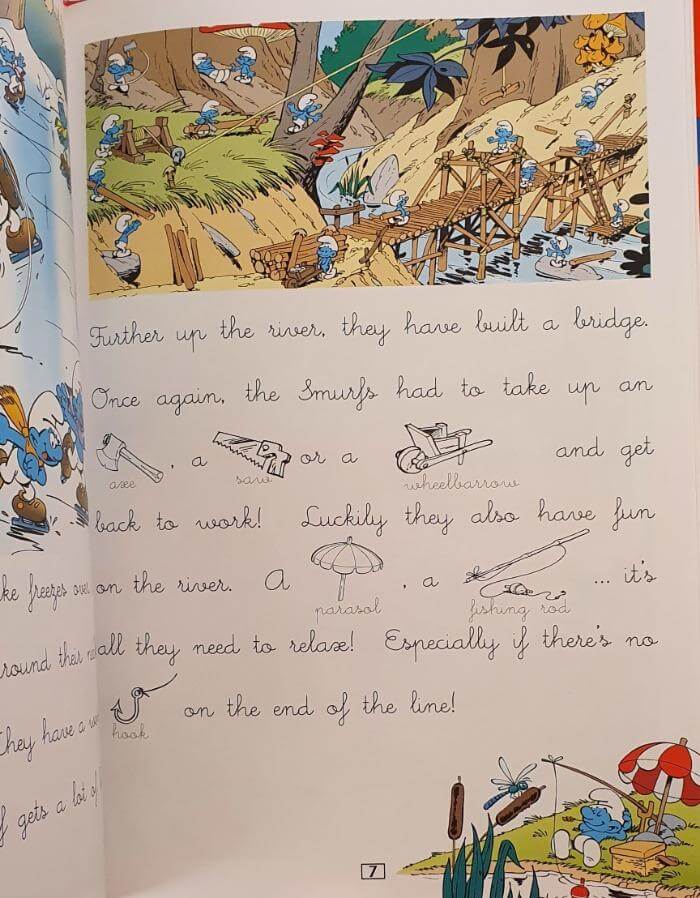 Further up the river, they have built a bridge.
Once again, the Smurfs had to take up an
, a or a and get
axe saw wheelbarrow
back to work! Luckily they also have fun
on the river. A , a ... it's
parasol fishing rod
all they need to relax! Especially if there's no
on the end of the line!
hook
7
ke freezes over
round their
they have a
f gets a lot of